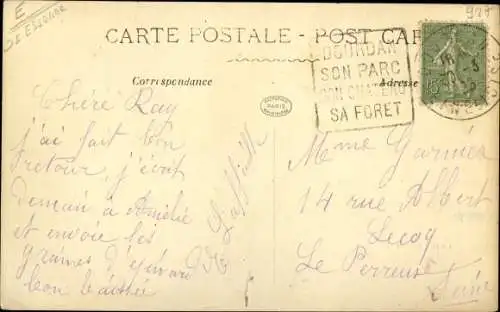 E
DE
928
CARTE POSTALE - POST CAR
DOURDAN
SON PARC
SON CHATEAU
SA FORET
Correspondance
Adresse
PARIS
Chéré Ray
j'ai fait bon
retour, j'écrit
demain à Amélie
et envoie les
graines
bon
Mme Garnier
14 rue Albert
Lecoq
Le Perreux
Seine